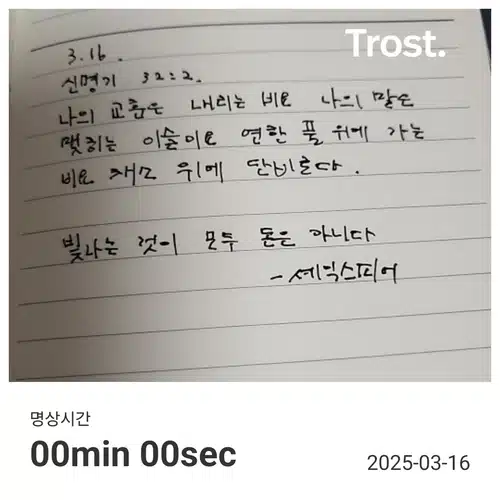 Trost.
3.16.
신명기 32:2.
나의 교훈은 내리는 비요 나의 말은
맺히는 이슬이요 연한 풀 위에 가는
비요 채소 위에 단비로다.
빛나는 것이 모두 돈은 아니다
- 셰익스피어
명상시간
00min 00sec
2025-03-16